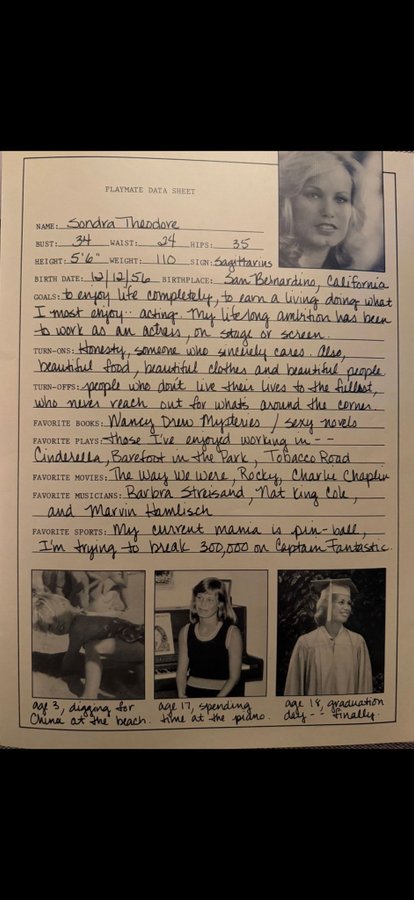 PLAYMATE DATA SHEET
NAME: Sondra Theodore
BUST: 34 WAIST: 24 HIPS: 35
HEIGHT: 5'6" WEIGHT: 110 SIGN: Sagittarius
BIRTH DATE: 12/12/56 BIRTHPLACE: San Bernardino, California
GOALS: to enjoy life completely, to earn a living doing what
I most enjoy-- acting. My lifelong ambition has been
to work as an actress, on stage or screen.
TURN-ONS: Honesty, someone who sincerely cares. Also,
beautiful food, beautiful clothes and beautiful people
TURN-OFFS: people who dont live their lives to the fullest,
who never reach out for whats around the corner.
FAVORITE BOOKS: Nancy Drew Mysteries / sexy novels
FAVORITE PLAYS: those I've enjoyed working in --
Cinderella, Barefoot in the Park, Tobacco Road
FAVORITE MOVIES: The Way We Were, Rocky, Charlie Chaplin
FAVORITE MUSICIANS: Barbra Streisand, Nat King Cole,
and Marvin Hamlisch
FAVORITE SPORTS: My current mania is pin-ball,
I'm trying to break 300,000 on Captain Fantastic.
age 3, digging for
China at the beach.
age 17, spending
time at the piano.
age 18, graduation
day -- finally.